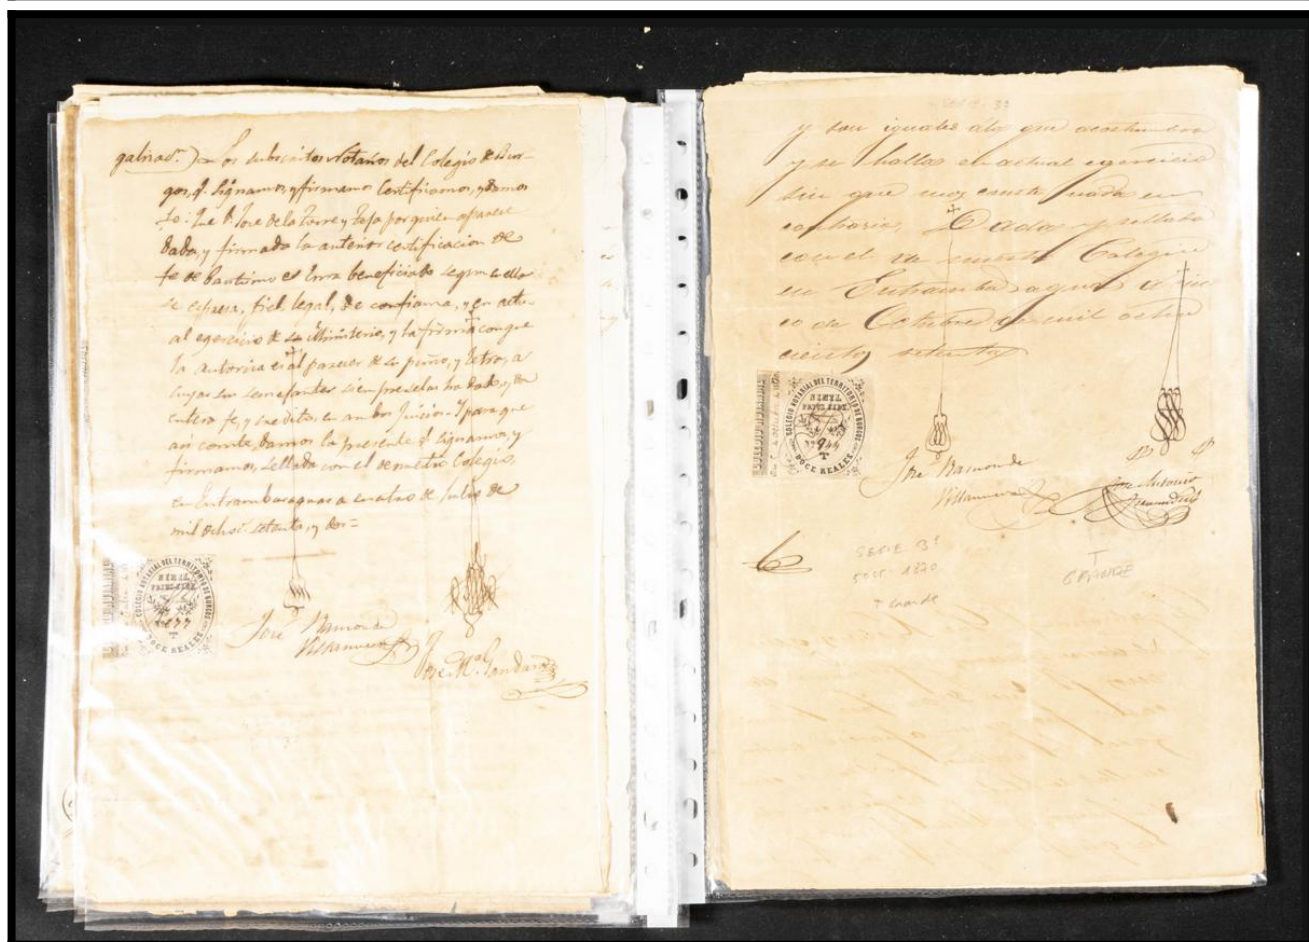 galizaon.) Los subscritos Notarios del Colegio de Bur-
gos, q. signamos, y firmamos Certificamos, y damos
fe: Que D. Jose de la Torre y Toja por quien aparece
dada, y firmada la anterior certificacion de
fe de Bautismo es Cura beneficiado segun en ella
se espresa, fiel, legal, de confianza, y en actu-
al egercicio de su Ministerio, y la firma con que
la autoriza es al parecer de su puño, y letra, a
cuyas semejantes siempre se les ha dado, y da
entera fe, y credito, en ambos Juicios. Y para que
asi conste damos la presente q. signamos, y
firmamos, sellada con el de nuestro Colegio,
en Entrambasaguas a cuatro de Julio de
mil ochos. setenta, y dos=
COLEGIO NOTARIAL DEL TERRITORIO DE BURGOS
NIHIL
PRIUS FIDE
DOCE REALES
José Ramon de
Villanueva
Jose Ma. Gandara
y son iguales á las que acostumbra
y se halla en actual egercicio
sin que nos conste nada en
contrario. Dada y sellada
con el de nuestro Colegio
en Entrambasaguas á cin
co de Octubre de mil ocho
cientos setenta
COLEGIO NOTARIAL DEL TERRITORIO DE BURGOS
NIHIL
PRIUS FIDE
No 944
T
DOCE REALES
José Ramon de
Villanueva
José Antonio
SERIE 3ª
1870
T Grande
T
GRANDE